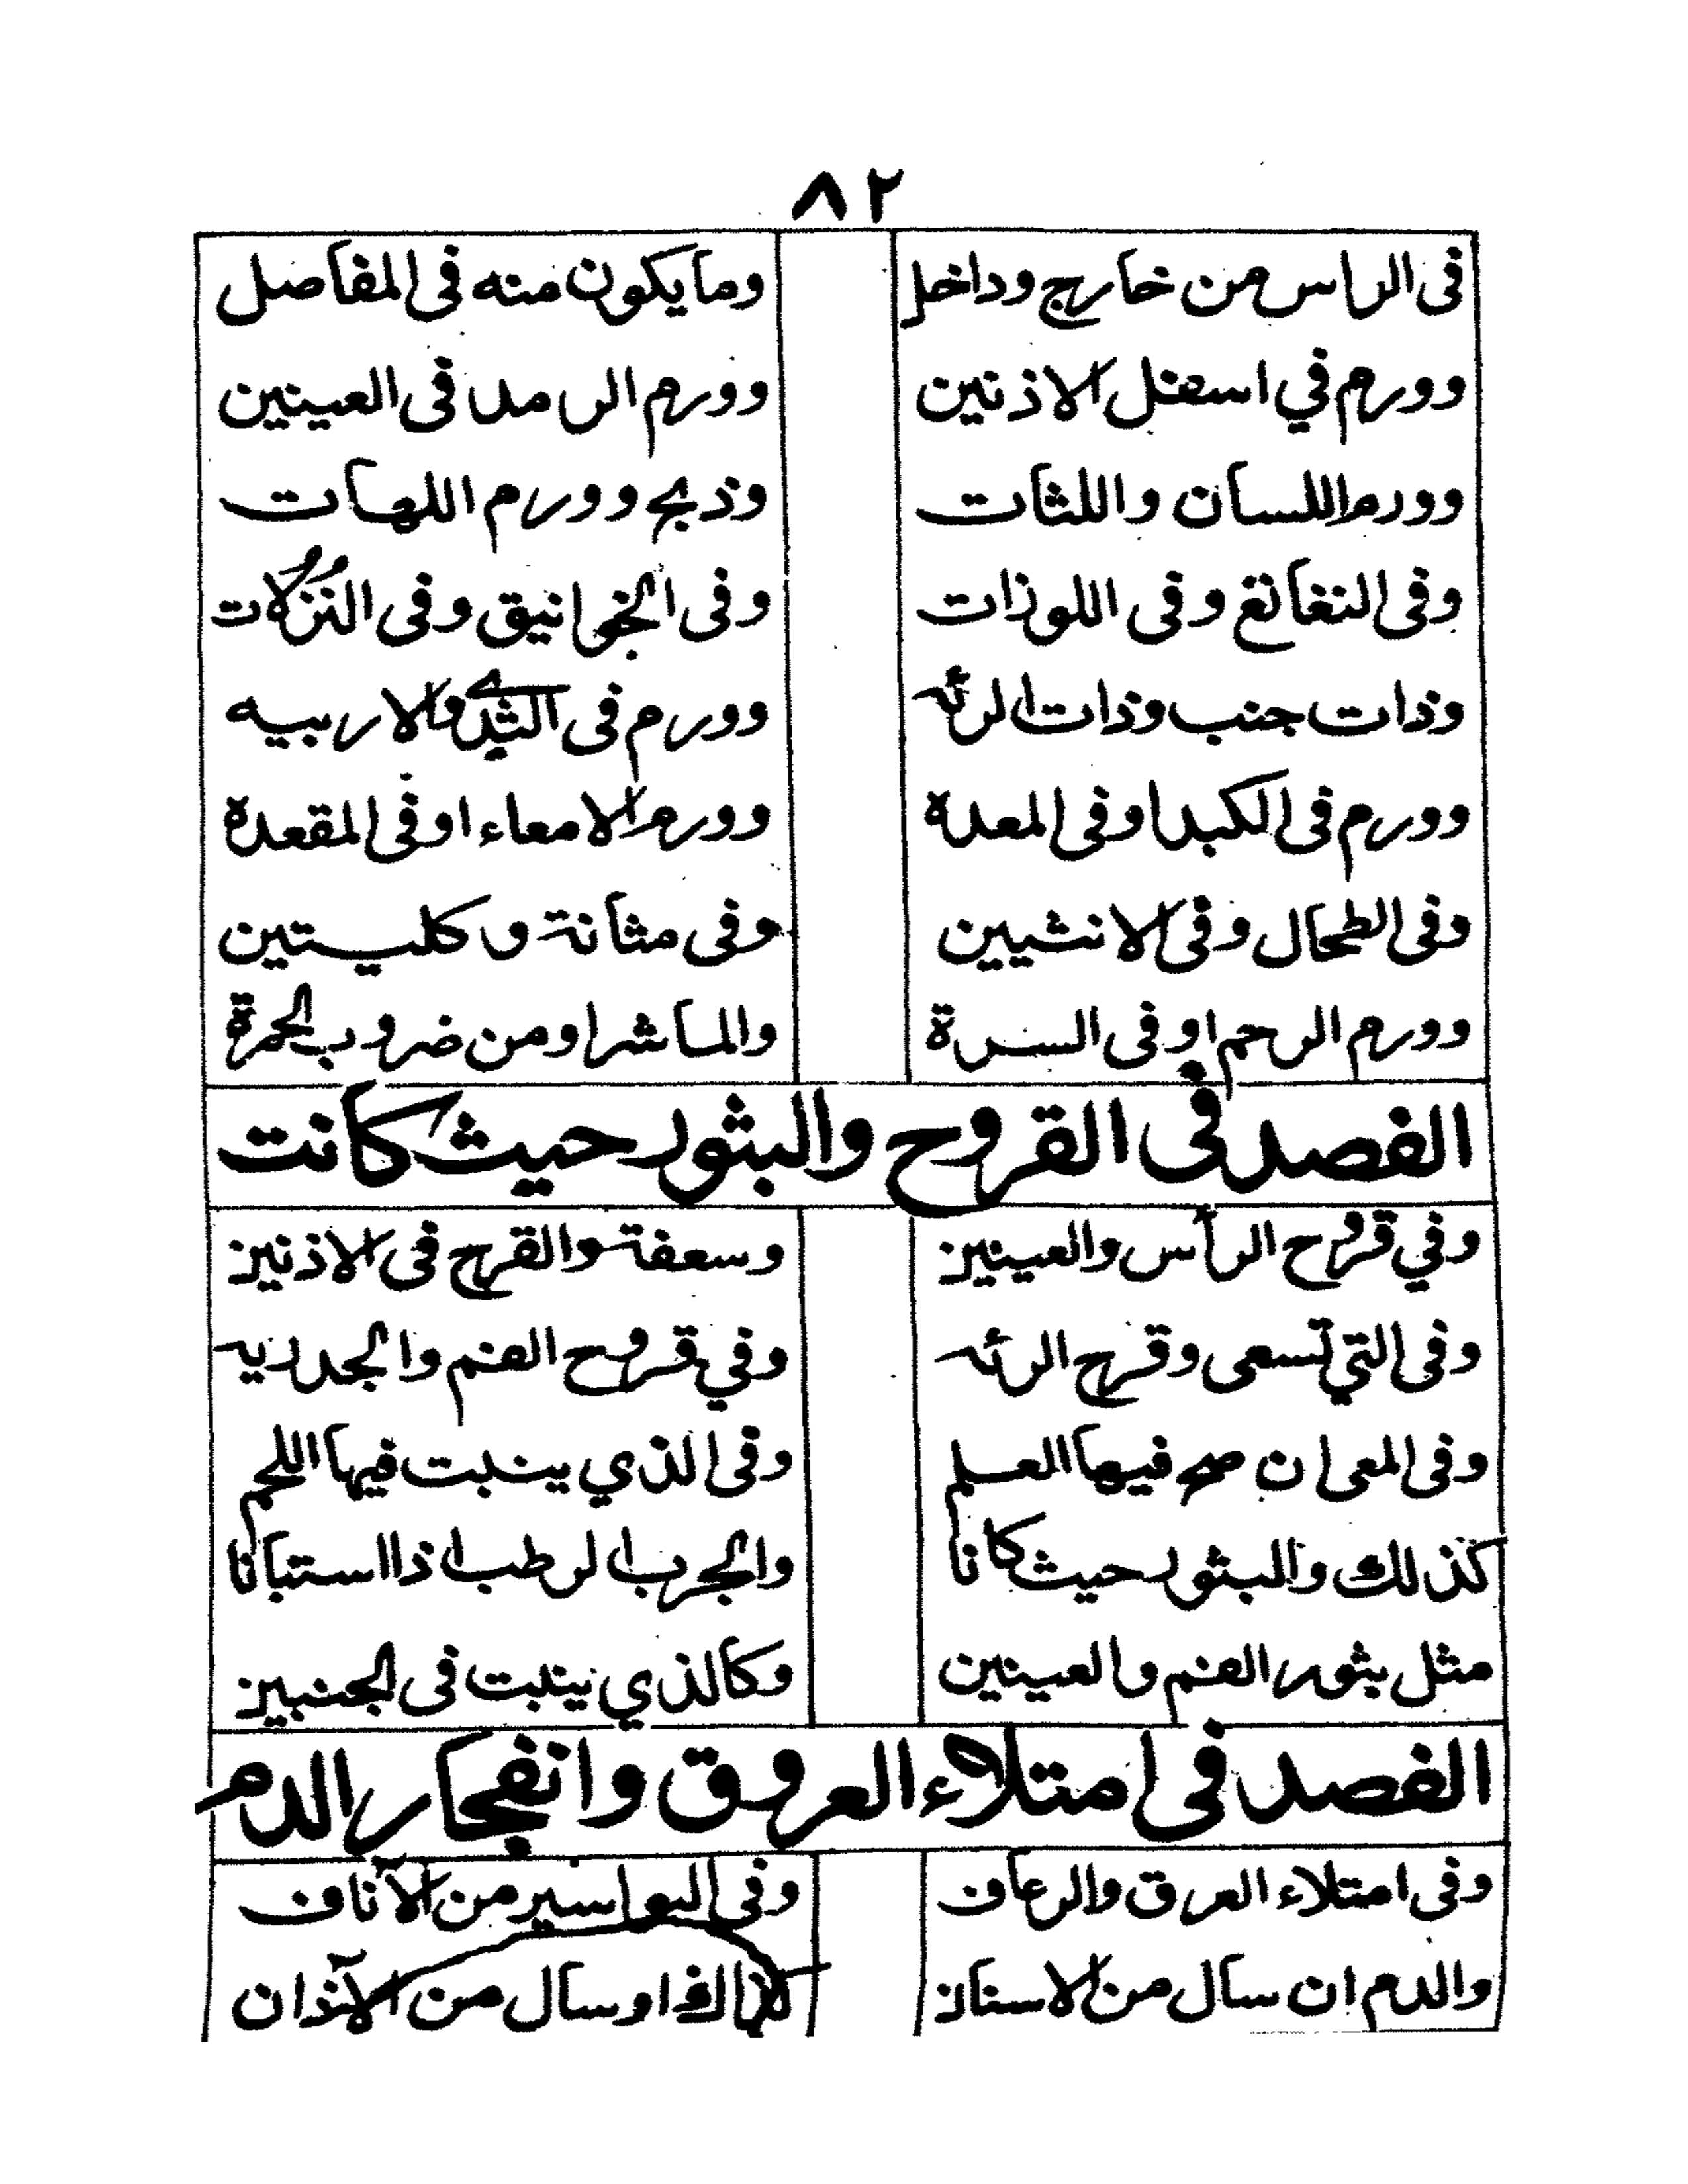 ٨٢
فى الراس من خارج وداخل وما يكون منه فى المفاصل
وورم في اسفل الاذنين وورم الرمد فى العينين
وورم اللسان واللثات وذبح وورم اللهات
وفى النغانغ وفى اللوزات وفى الخوانيق وفى النزلات
وذات جنب وذات الرئه وورم فى الثدي والاربيه
وورم فى الكبد اوفى المعده وورم الامعاء اوفى المقعدة
وفى الطحال وفى الانثيين وفى مثانة وكليتين
وورم الرحم اوفى السرة والماشرا ومن ضروب الحمرة
الفصد فى القروح والبثور حيث كانت
وفي قروح الرأس والعينين وسعفة والقرح فى الاذنين
وفى التي تسعى وقرح الرئه وفي قروح الفم والجدريه
وفى المعى ان صح فيها العلم وفى الذي ينبت فيها اللحم
كذلك والبثور حيث كانا والجرب الرطب اذا استبانا
مثل بثور الفم والعينين وكالذي ينبت فى الجنبين
الفصد فى امتلاء العروق وانفجار الدم
وفى امتلاء العرق والرعاف وفى البواسير من الآناف
والدم ان سال من الاسنان اوسال من الآذان